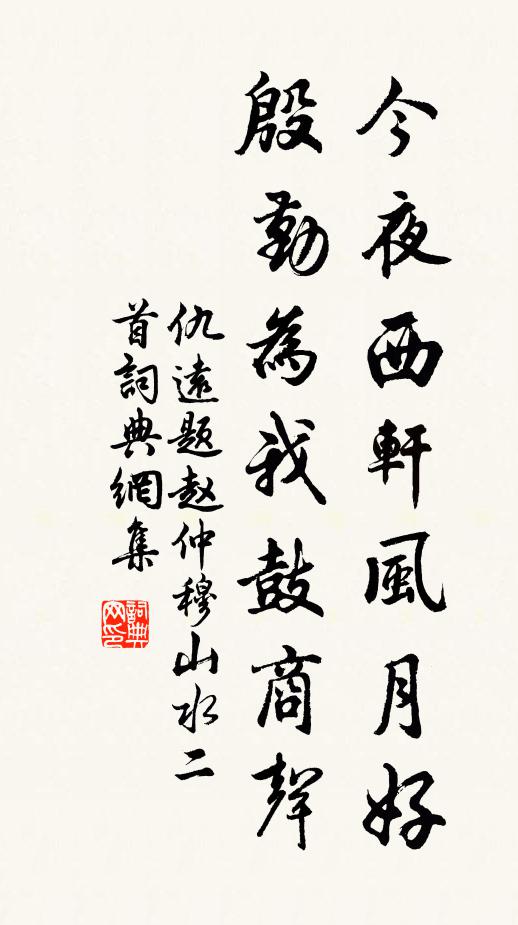 今夜西軒風月好
殷勤為我鼓商聲
仇遠題趙仲穆山水二
首詞典網集
詞典网印